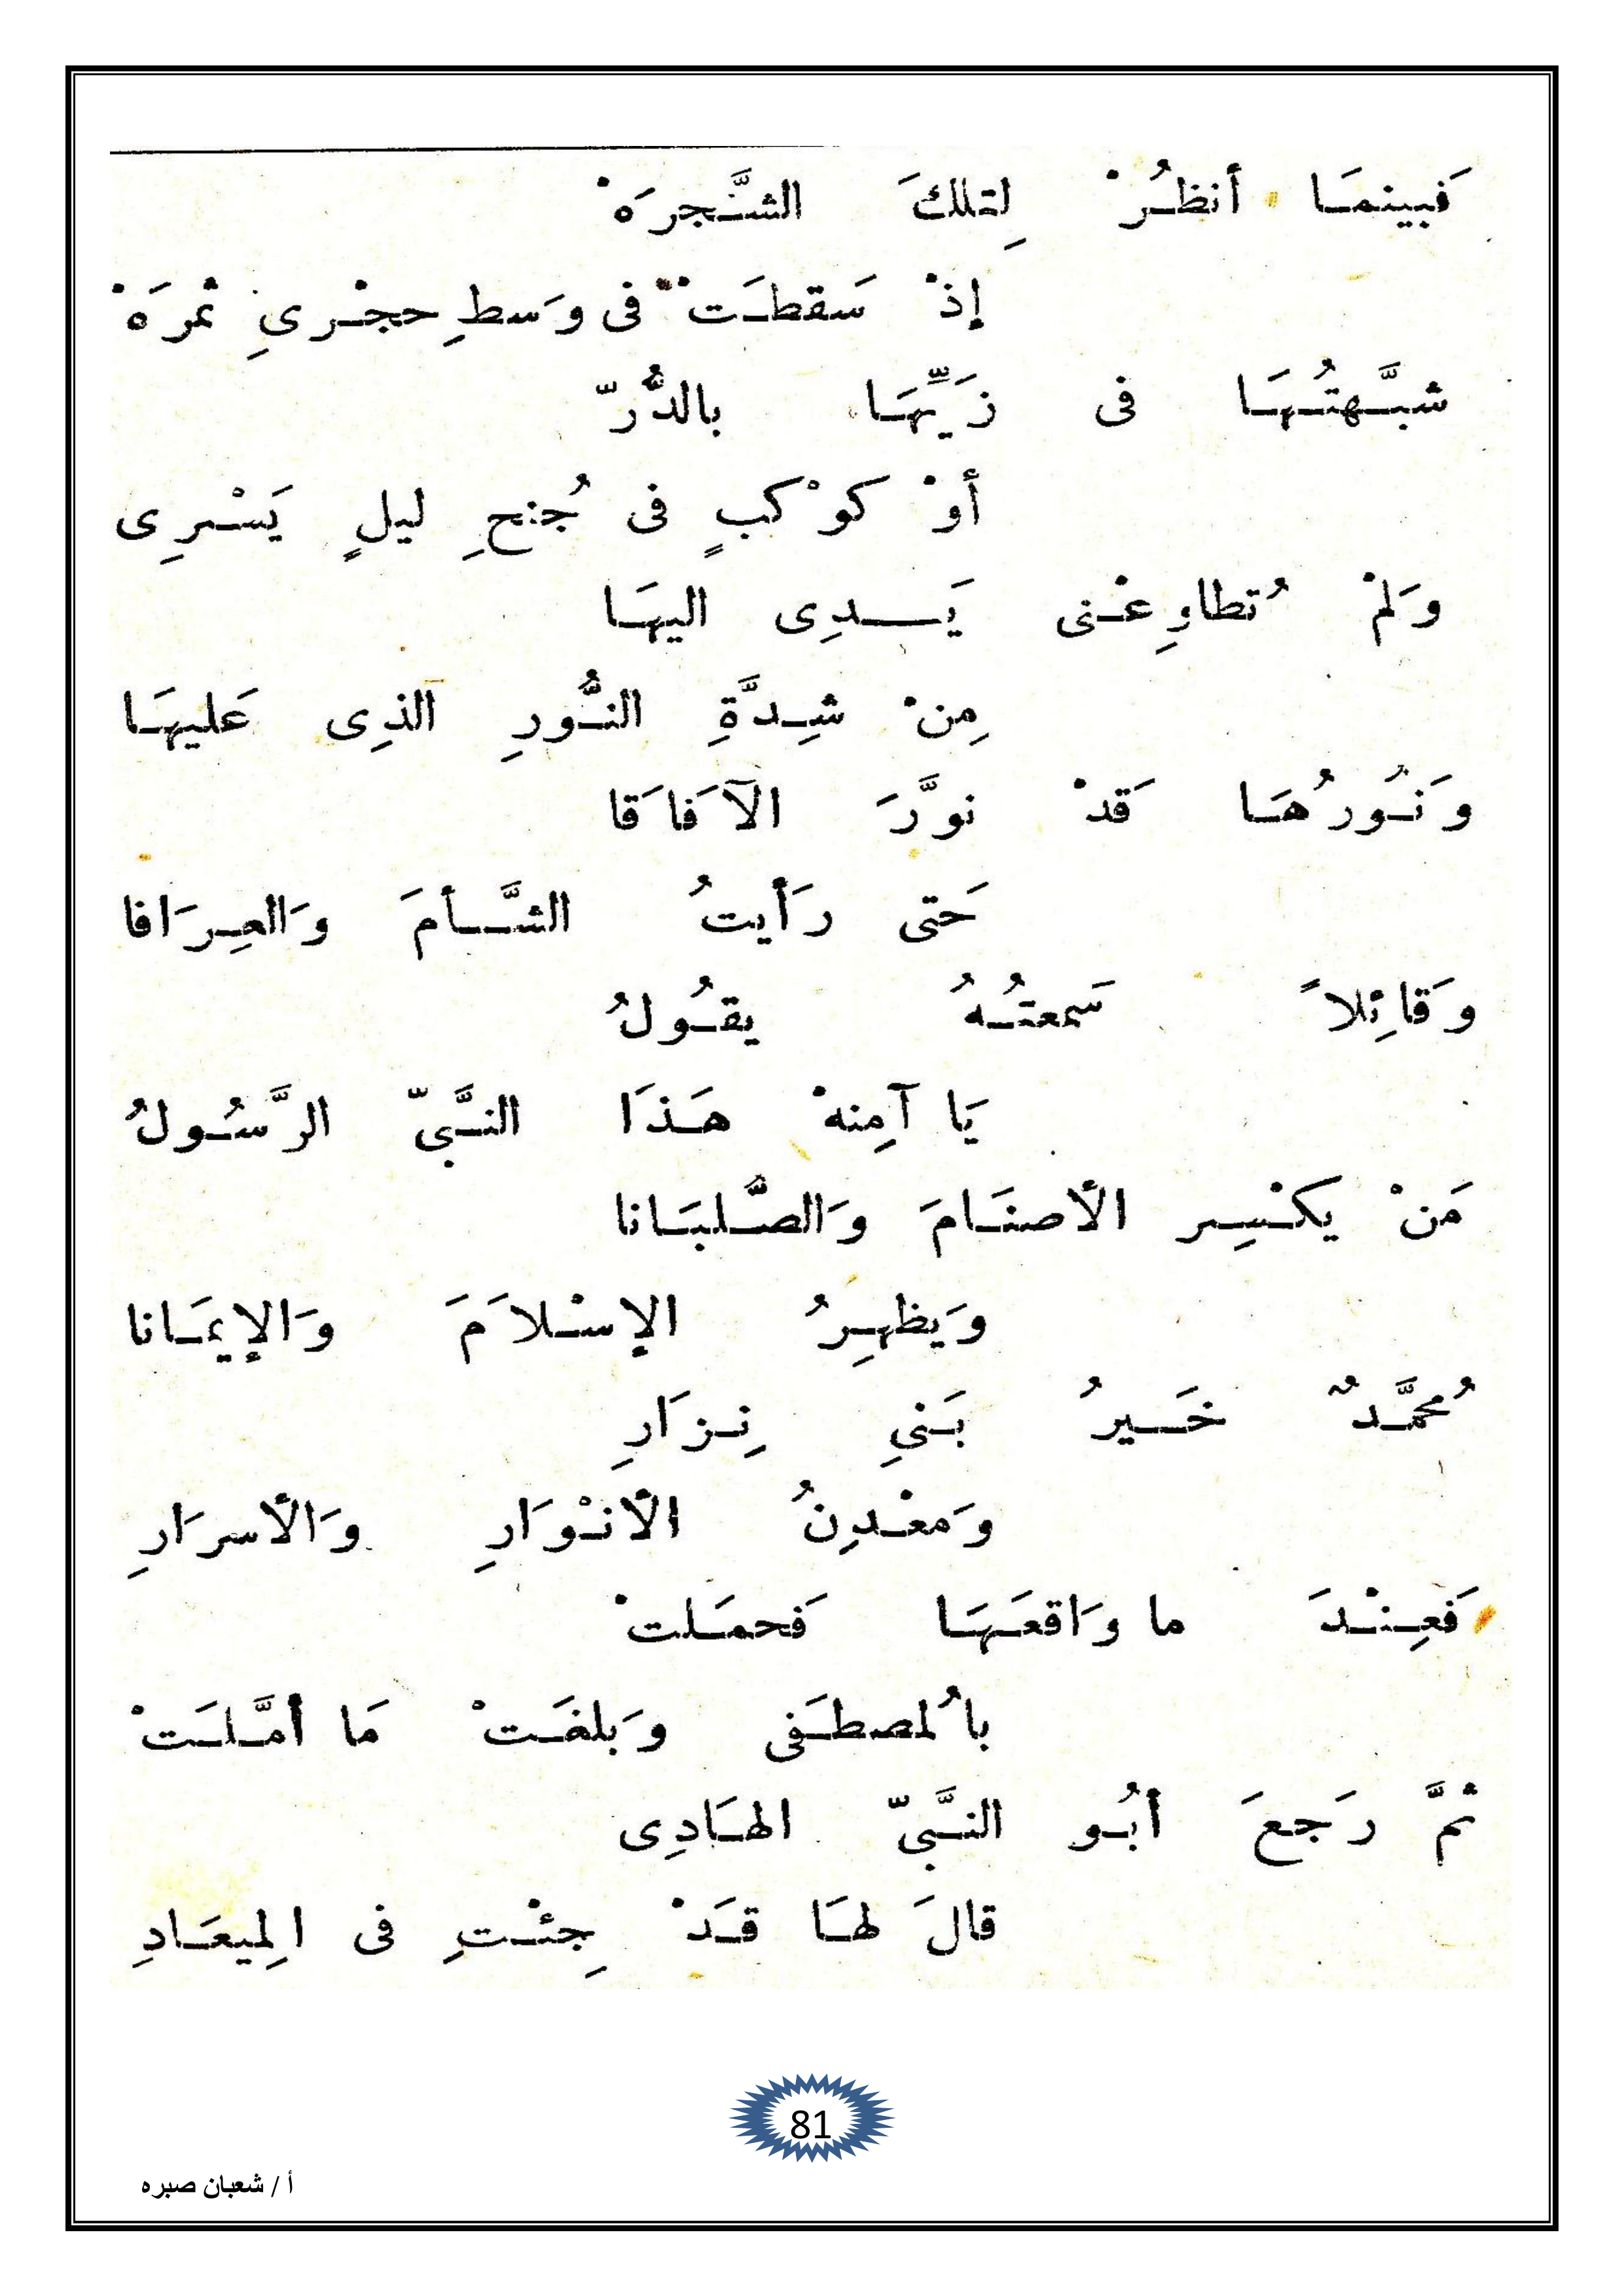 فَبينمَا أنظُرْ لِتلكَ الشَّجرَهْ
إذْ سَقطَتْ فى وَسطِ حجْرىِ ثمرَهْ
شبَّهتُهَا فى زَيِّهَا بالدُّرّ
أوْ كوْكبٍ فى جُنحِ ليلٍ يَسْرِى
وَلمْ تُطاوِعْنى يَدِى اليهَا
مِنْ شِدَّةِ النُّورِ الذِى عَليهَا
وَنُورُهَا قَدْ نوَّرَ الآفَاقَا
حَتى رَأيتُ الشَّأمَ وَالعِرَافا
وَقائِلاً سَمعتُهُ يقُولُ
يَا آمِنهْ هَذَا النَّبىّ الرَّسُولُ
مَنْ يكْسِر الأصنَامَ وَالصُّلبَانا
وَيظهِرُ الإسْلاَمَ وَالإيمَانا
مُحمَّدٌ خَيرُ بَنىِ نِزَارِ
وَمعْدِنُ الأنْوَارِ وَالأسرَارِ
فَعِنْدَ ما وَاقعَهَا فَحمَلتْ
بالمُصطَفى وَبلغَتْ مَا أمَّلَتْ
ثمَّ رَجعَ أبُو النَّبىّ الهَادِى
قالَ لهَا قَدْ جِئْتِ فى المِيعَادِ
81
أ / شعبان صبره